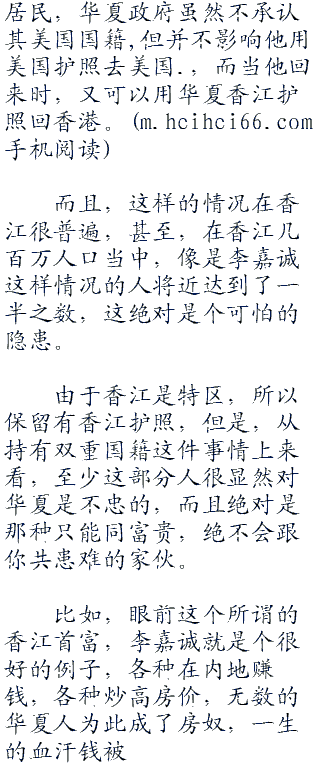 居民，华夏政府虽然不承认
其美国国籍,但并不影响他用
美国护照去美国.，而当他回
来时，又可以用华夏香江护
照回香港。(m.hcihci66.com
手机阅读)
而且，这样的情况在香
江很普遍，甚至，在香江几
百万人口当中，像是李嘉诚
这样情况的人将近达到了一
半之数，这绝对是个可怕的
隐患。
由于香江是特区，所以
保留有香江护照，但是，从
持有双重国籍这件事情上来
看，至少这部分人很显然对
华夏是不忠的，而且绝对是
那种只能同富贵，绝不会跟
你共患难的家伙。
比如，眼前这个所谓的
香江首富，李嘉诚就是个很
好的例子，各种在内地赚
钱，各种炒高房价，无数的
华夏人为此成了房奴，一生
的血汗钱被